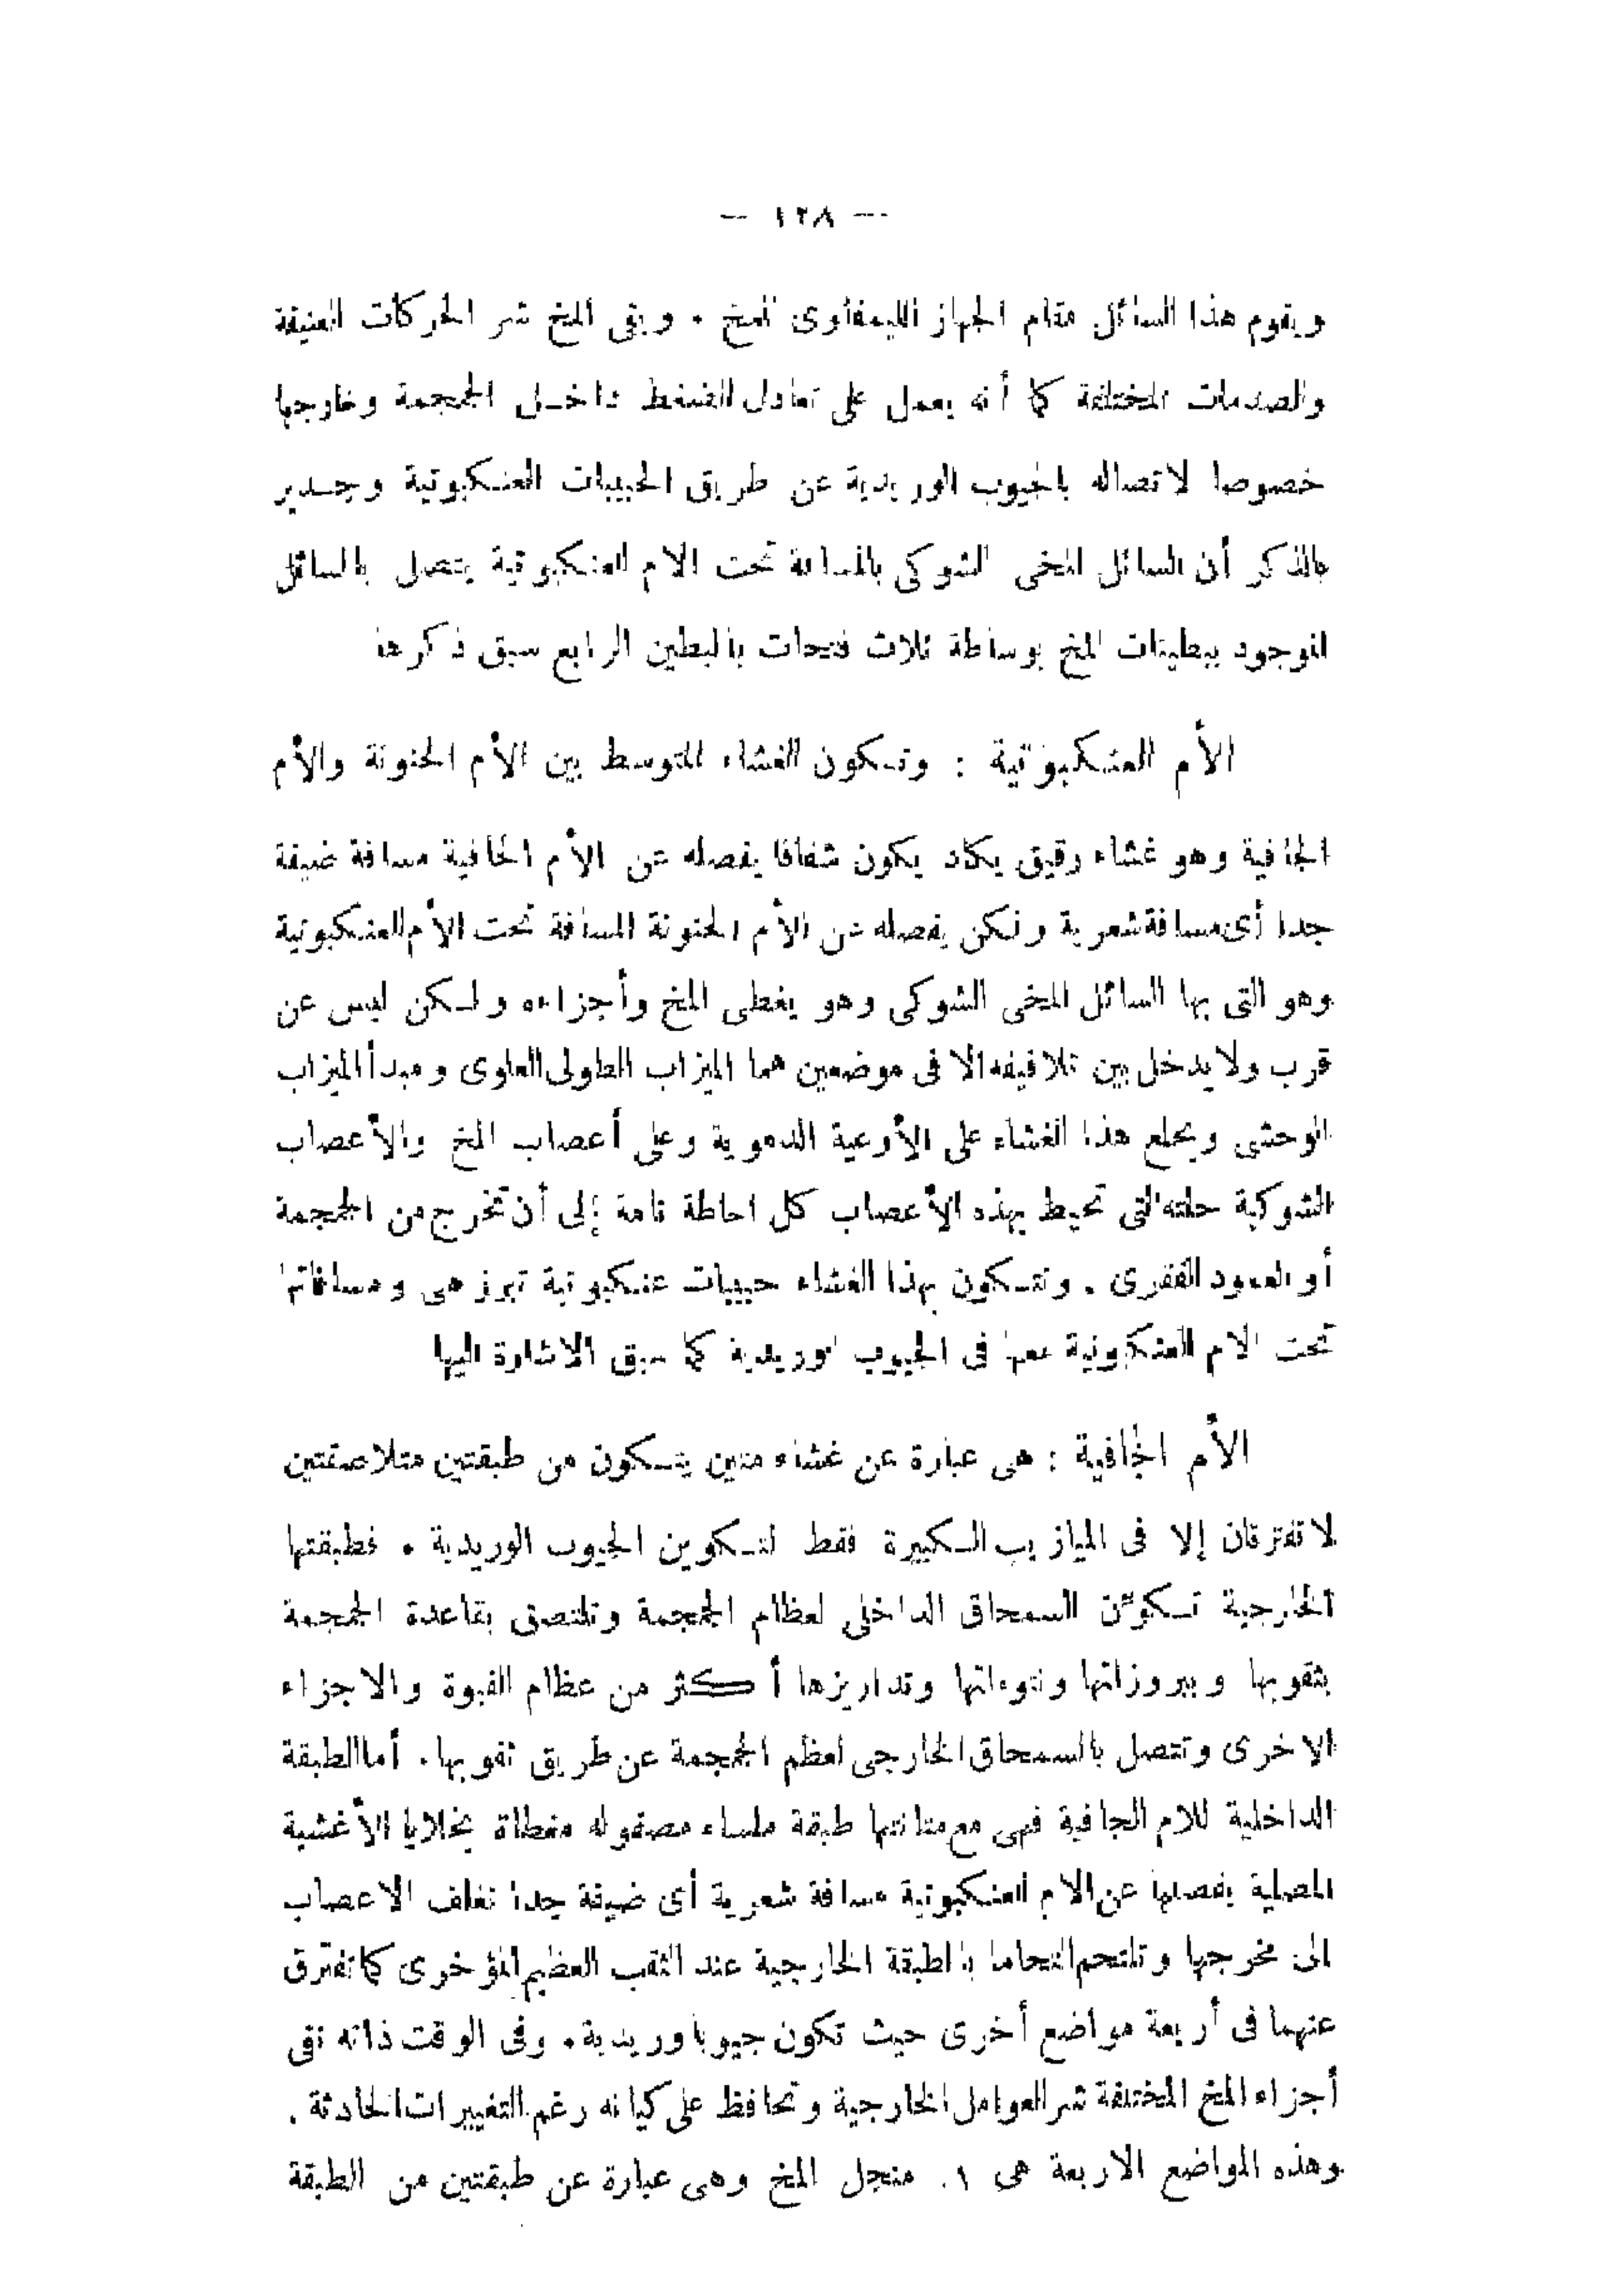 — ١٢٨ —
ويقوم هذا السائل مقام الجهاز الليمفاوى للمخ . ويقى المخ شر الحركات العنيفة
والصدمات المختلفة كما أنه يعمل على تعادل الضغط داخل الجمجمة وخارجها
خصوصا لاتصاله بالجيوب الوريدية عن طريق الحبيبات العنكبوتية وجدير
بالذكر أن السائل المخى الشوكى بالمسافة تحت الام العنكبوتية يتصل بالسائل
الموجود ببطينات المخ بوساطة ثلاث فتحات بالبطين الرابع سبق ذكرها
الأم العنكبوتية : وتكون الغشاء المتوسط بين الأم الحنونة والأم
الجافية وهو غشاء رقيق يكاد يكون شفافا يفصله عن الأم الجافية مسافة ضيقة
جدا أى مسافة شعرية ولكن يفصله عن الأم الحنونة المسافة تحت الأم العنكبوتية
وهو التى بها السائل المخى الشوكى وهو يغطى المخ وأجزاءه ولكن ليس عن
قرب ولا يدخل بين تلافيفه الا فى موضعين هما الميزاب الطولى العلوى ومبدأ الميزاب
الوحشى ويخلع هذا الغشاء على الأوعية الدموية وعلى أعصاب المخ والأعصاب
الشوكية حلته التى تحيط بهذه الأعصاب كل احاطة تامة إلى أن تخرج من الجمجمة
أو العمود الفقرى . وتتكون بهذا الغشاء حبيبات عنكبوتية تبرز هى ومسافاتها
تحت الام العنكبوتية معها فى الجيوب الوريدية كما سبق الاشارة اليها
الأم الجافية : هى عبارة عن غشاء متين يتكون من طبقتين متلاصقتين
لا تفترقان إلا فى الميازيب الكبيرة فقط لتكوين الجيوب الوريدية . فطبقتها
الخارجية تكوّن السمحاق الداخلى لعظام الجمجمة وتلتصق بقاعدة الجمجمة
بثقوبها وببروزاتها ونتوءاتها وتداريزها أكثر من عظام القبوة والاجزاء
الاخرى وتتصل بالسمحاق الخارجى لعظم الجمجمة عن طريق ثقوبها . أما الطبقة
الداخلية للام الجافية فهى مع متانتها طبقة ملساء مصقوله مغطاة بخلايا الأغشية
المصلية يفصلها عن الام العنكبوتية مسافة شعرية أى ضيقة جدا تغلف الاعصاب
الى مخرجها وتلتحم التحاما بالطبقة الخارجية عند الثقب العظيم المؤخرى كما تفترق
عنهما فى أربعة مواضع أخرى حيث تكون جيوبا وريدية . وفى الوقت ذاته تقى
أجزاء المخ المختلفة شر العوامل الخارجية وتحافظ على كيانه رغم التغييرات الحادثة .
وهذه المواضع الاربعة هى ١. منجل المخ وهى عبارة عن طبقتين من الطبقة